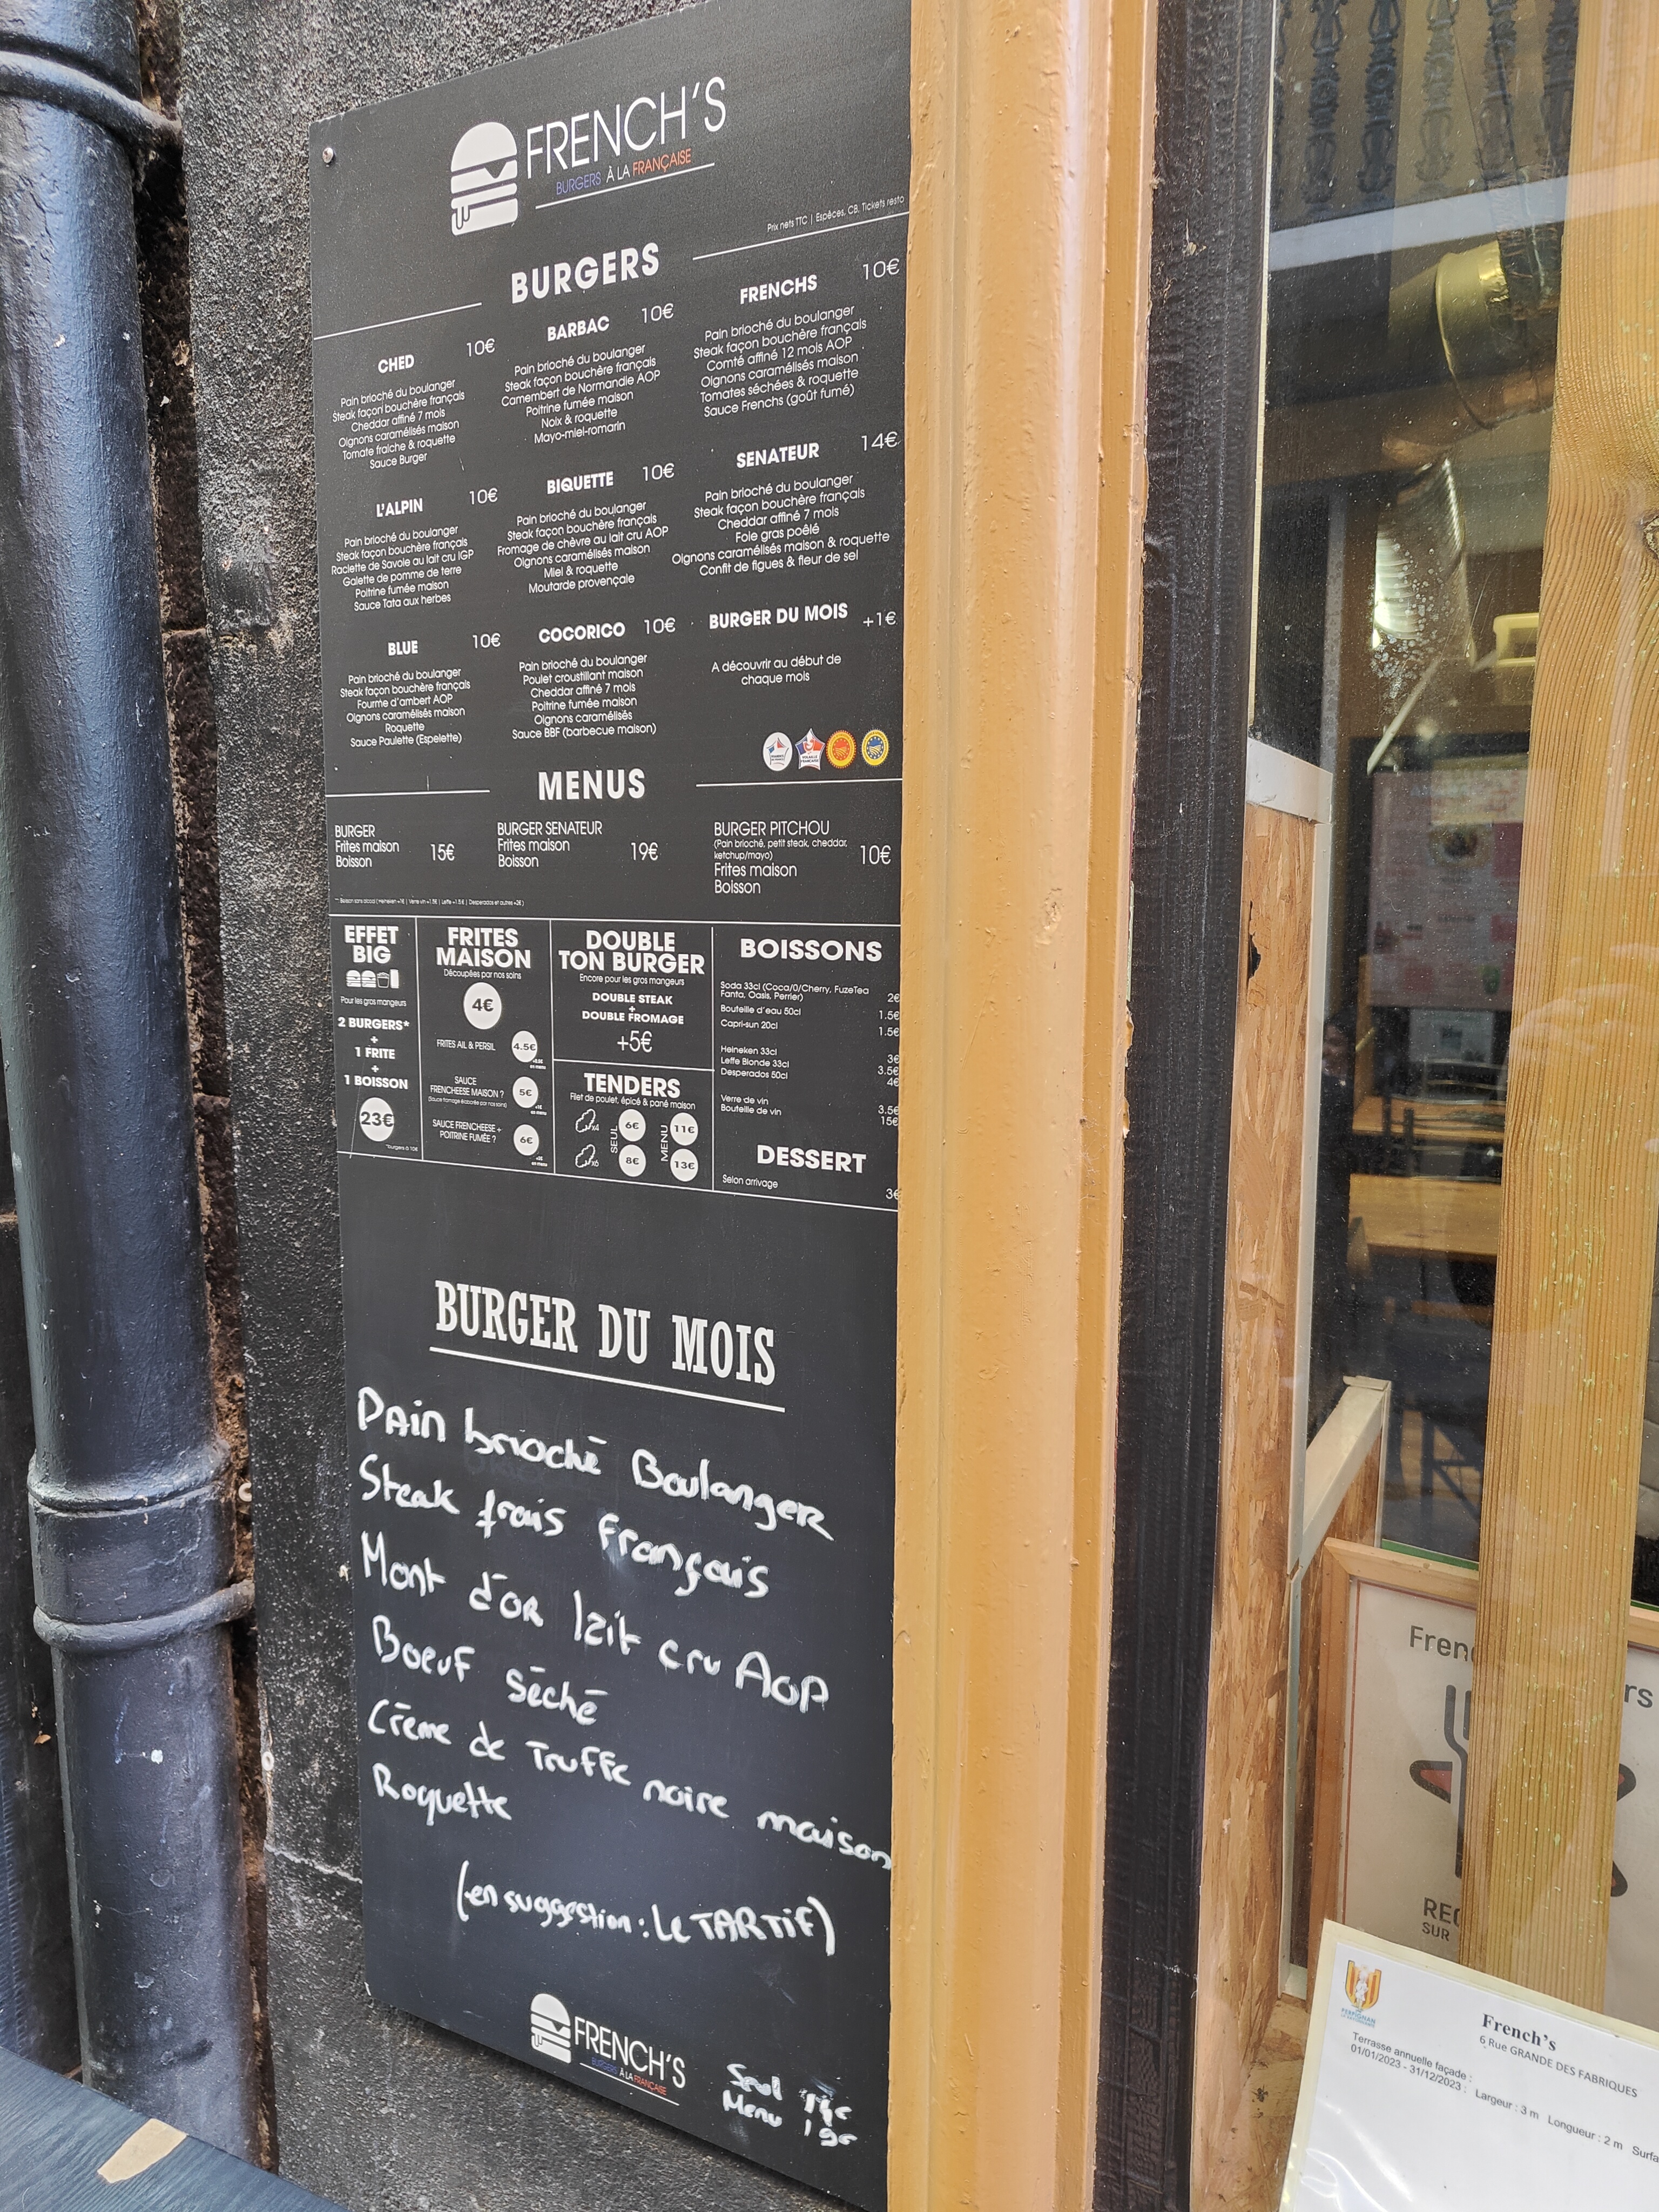 FRENCH'S
BURGERS À LA FRANÇAISE
Prix nets TTC | Espèces, CB, Tickets resto
BURGERS
CHED 10€
Pain brioché du boulanger
Steak façon bouchère français
Cheddar affiné 7 mois
Oignons caramélisés maison
Tomate fraiche & roquette
Sauce Burger
BARBAC 10€
Pain brioché du boulanger
Steak façon bouchère français
Camembert de Normandie AOP
Poitrine fumée maison
Noix & roquette
Mayo-miel-romarin
FRENCHS 10€
Pain brioché du boulanger
Steak façon bouchère français
Comté affiné 12 mois AOP
Oignons caramélisés maison
Tomates séchées & roquette
Sauce Frenchs (goût fumé)
L'ALPIN 10€
Pain brioché du boulanger
Steak façon bouchère français
Raclette de Savoie au lait cru IGP
Galette de pomme de terre
Poitrine fumée maison
Sauce Tata aux herbes
BIQUETTE 10€
Pain brioché du boulanger
Steak façon bouchère français
Fromage de chèvre au lait cru AOP
Oignons caramélisés maison
Miel & roquette
Moutarde provençale
SENATEUR 14€
Pain brioché du boulanger
Steak façon bouchère français
Cheddar affiné 7 mois
Foie gras poêlé
Oignons caramélisés maison & roquette
Confit de figues & fleur de sel
BLUE 10€
Pain brioché du boulanger
Steak façon bouchère français
Fourme d'ambert AOP
Oignons caramélisés maison
Roquette
Sauce Paulette (Espelette)
COCORICO 10€
Pain brioché du boulanger
Poulet croustillant maison
Cheddar affiné 7 mois
Poitrine fumée maison
Oignons caramélisés
Sauce BBF (barbecue maison)
BURGER DU MOIS +1€
A découvrir au début de
chaque mois
MENUS
BURGER
Frites maison 15€
Boisson
BURGER SENATEUR
Frites maison 19€
Boisson
BURGER PITCHOU
(Pain brioché, petit steak, cheddar,
ketchup/mayo) 10€
Frites maison
Boisson
EFFET
BIG
Pour les gros mangeurs
2 BURGERS*
+
1 FRITE
+
1 BOISSON
23€
*burgers à 10€
FRITES
MAISON
Découpées par nos soins
4€
FRITES AIL & PERSIL 4.5€
SAUCE
FRENCHEESE MAISON ? 5€
(Sauce fromage élaborée par nos soins)
SAUCE FRENCHEESE +
POITRINE FUMÉE ? 6€
DOUBLE
TON BURGER
Encore pour les gros mangeurs
DOUBLE STEAK
+
DOUBLE FROMAGE
+5€
TENDERS
Filet de poulet, épicé & pané maison
x4 SEUL 6€ MENU 11€
x6 8€ 13€
BOISSONS
Soda 33cl (Coca/0/Cherry, FuzeTea
Fanta, Oasis, Perrier) 2€
Bouteille d'eau 50cl 1.5€
Capri-sun 20cl 1.5€
Heineken 33cl 3€
Leffe Blonde 33cl 3.5€
Desperados 50cl 4€
Verre de vin 3.5€
Bouteille de vin 15€
DESSERT
Selon arrivage 3€
BURGER DU MOIS
Pain brioché Boulanger
Steak frais français
Mont d'or lait cru AOP
Boeuf séché
Crème de Truffe noire maison
Roquette
(en suggestion : Le TARTIF)
FRENCH'S
BURGERS À LA FRANÇAISE
Seul
Menu 19€
Fren
rs
REC
SUR
PERPIGNAN
French's
6 Rue GRANDE DES FABRIQUES
Terrasse annuelle façade :
01/01/2023 - 31/12/2023 : Largeur : 3 m Longueur : 2 m Surfa